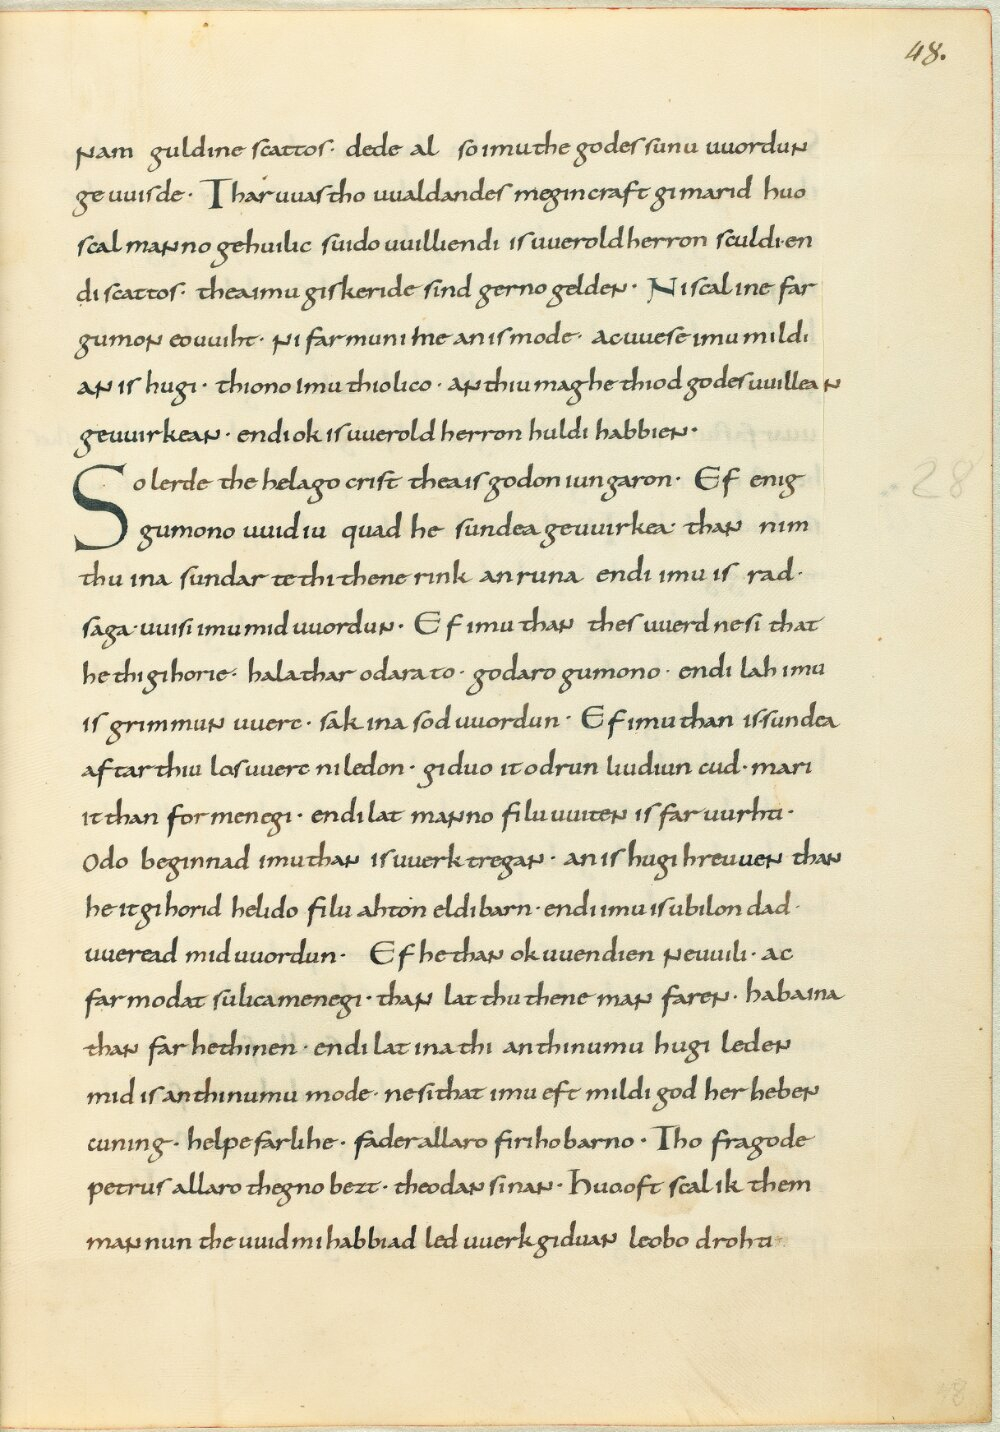 48.
nam guldine scattos· dede al so imu the godes sunu uuordun
geuuisde· Thar uuas tho uualdandes megincraft gimarid huo
scal manno gehuilic suido uuilliendi is uuerold herron sculdi en
di scattos· thea imu giskeride sind gerno gelden· Ni scal ine far
gumon eouuiht· ni farmuni ine an is mode· ac uuese imu mildi
an is hugi· thiono imu thiolico· an thiu mag he thiod godes uuillean
geuuirkean· endi ok is uuerold herron huldi habbien·
So lerde the helago crist thea is godon iungaron· Ef enig
gumono uuid iu quad he sundea geuuirkea· than nim
thu ina sundar te thi thene rink an runa endi imu is rad·
saga· uuisi imu mid uuordun· Ef imu than thes uuerd ne si that
he thi gihorie· hala thar odara to· godaro gumono· endi lah imu
is grimmun uuerc· sak ina sod uuordun· Ef imu than is sundea
aftar thiu los uuerc ni ledon· giduo it odrun liudiun cud· mari
it than for menegi· endi lat manno filu uuiten is faruurhti·
Odo beginnad imu than is uuerk tregan· an is hugi hreuuen than
he it gihorid helido filu ahton eldibarn· endi imu is ubilon dad·
uueread mid uuordun· Ef he than ok uuendien neuuili· ac
farmodat sulica menegi· than lat thu thene man faren· haba ina
than far hethinen· endi lat ina thi an thinumu hugi leden
mid is an thinumu mode· ne si that imu eft mildi god her heben
cuning· helpe farlihe· fader allaro firiho barno· Tho fragode
petrus allaro thegno bezt· theodan sinan· Huo oft scal ik them
mannun the uuid mi habbiad led uuerk giduan leobo drohti
28
48